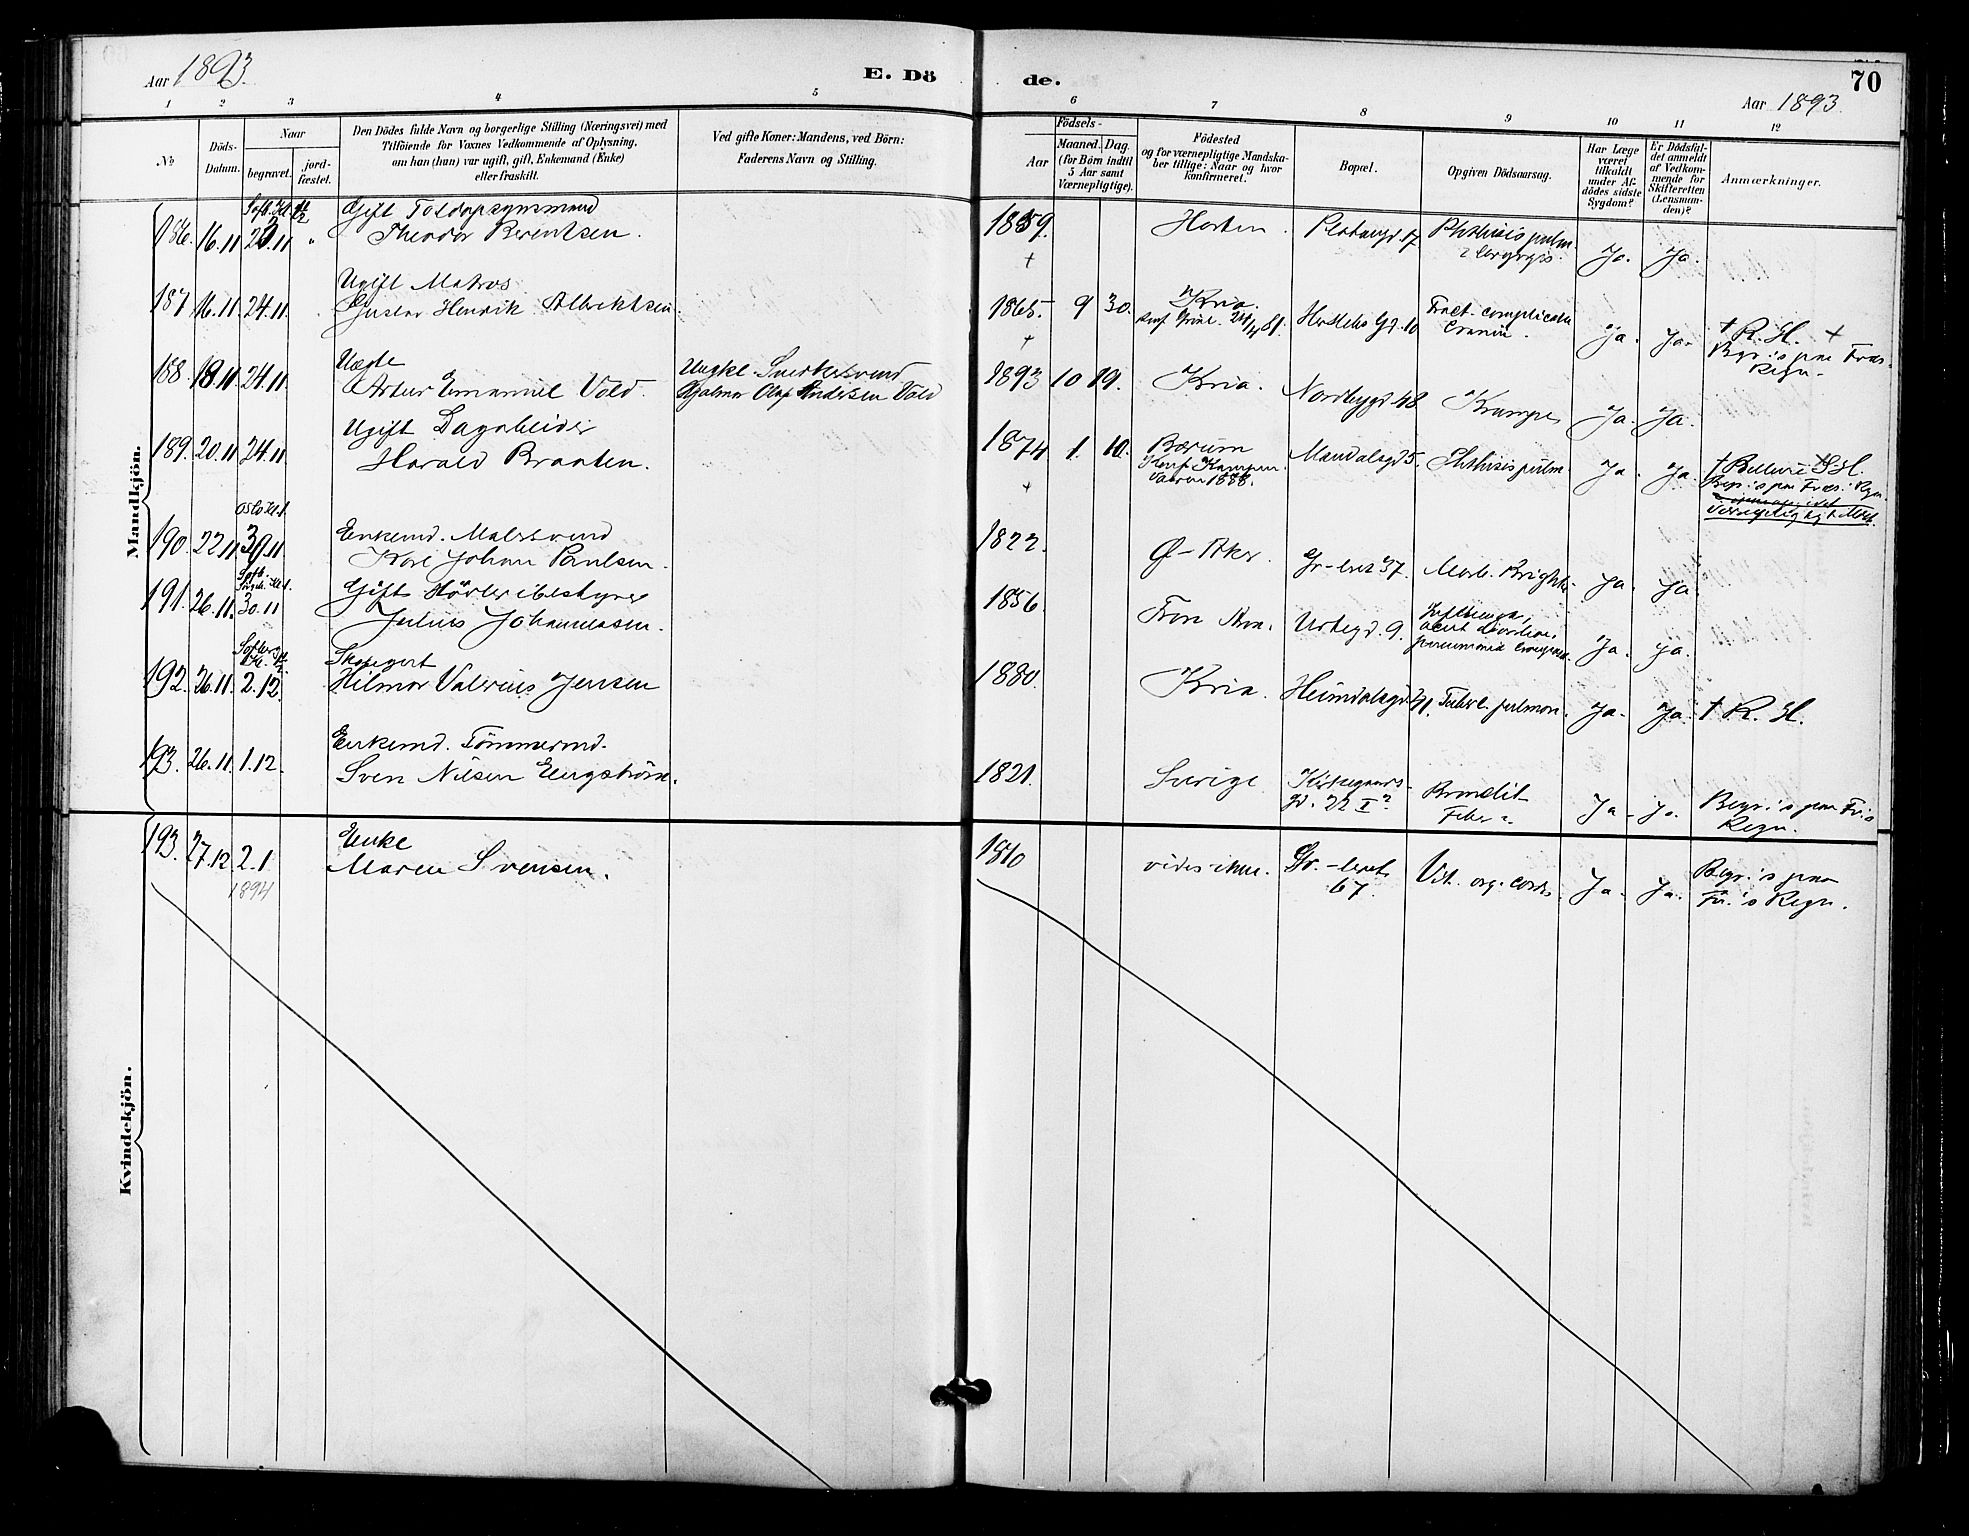 Aar 1893.
E. Dö
de.
70
Aar 1893.
1 2 3 4 5 6 7 8 9 10 11 12
No
Döds-
Datum.
Naar
begravet.
jord-
fæstet.
Den Dödes fulde Navn og borgerlige Stilling (Næringsvei) med
Tilföiende for Voxnes Vedkommende af Oplysning,
om han (hun) var ugift, gift, Enkemand (Enke)
eller fraskilt.
Ved gifte Koner: Mandens, ved Börn:
Faderens Navn og Stilling.
Födsels-
Aar
Maaned.
Dag.
(for Börn indtil
5 Aar samt
Værnepligtige).
Födested
og for værnepligtige Mandska-
ber tillige: Naar og hvor
konfirmeret.
Bopæl.
Opgiven Dödsaarsag.
Har Læge
været
tilkaldt
under Af-
dödes sidste
Sygdom?
Er Dödsfal-
det anmeldt
af Vedkom-
mende for
Skifteretten
(Lensman-
den)?
Anmærkninger.
Mandkjön.
186. 16.11 23.11 "
Gift Toldopsynsmand
Theodor Berentsen.
1859. Horten. Platougd 17 Phthisis pulm
& laryngis. Ja. Ja.
+
187 16.11. 24.11.
Ugift Matros
Gustav Henrik Albrektsen
1865. 9 30. Kria.
Hostels gd. 10 Fract. complicata
Cranii. Ja. Ja. † R. H. +
Begr. 's paa Fræs.
Regn.
+
188 18.11 24.11.
Uægte
Artur Emanuel Vold.
Ungkl. Snedkersvend
Hjalmar Olaf Andersen Vold
1893 10 19. Kria. Nordbygd 48 Krampe Ja. Ja.
189. 20.11 24.11
Ugift Dagarbeider
Harald Braaten.
1874 1. 10. Bærum
Konf. Kampen
1888. Mandalsgd 5. Phthisis pulm. Ja. Ja.
+
Oslo Hl.
190. 22.11 30.11
Enkemd. Malersvend
Karl Johan Paulsen.
1822. Ø-Aker. Gr-leret 37. Morb. Brightii Ja. Ja.
191. 26.11. 30.11
Gift Börleribestyrer
Julius Johannesen.
1856 Urtegd. 9. Influenza, Ja. Ja.
192. 26.11 2.12.
Skolegut
Hilmar Valerius Jensen
1880. Kria. Heimdalsgd 41. Tuberc. pulmon. Ja. Ja. † R. H.
193. 26.11. 1.12.
Enkemd. Tömmermd.
Sven Nilsen Engström.
1821. Sverige Kirkegaards-
gd. 22 I Bronchit
Feber Ja. Ja. Begr. 's paa Fr.'s
Regn.
Kvindekjön.
193. 27.12 2.1
1894
Enke
Maren Svensen.
1810 vides ikke. Gr.-leret
67. Vit. org. cordis. Ja. Ja. Begr. 's paa
Fr.'s Regn.